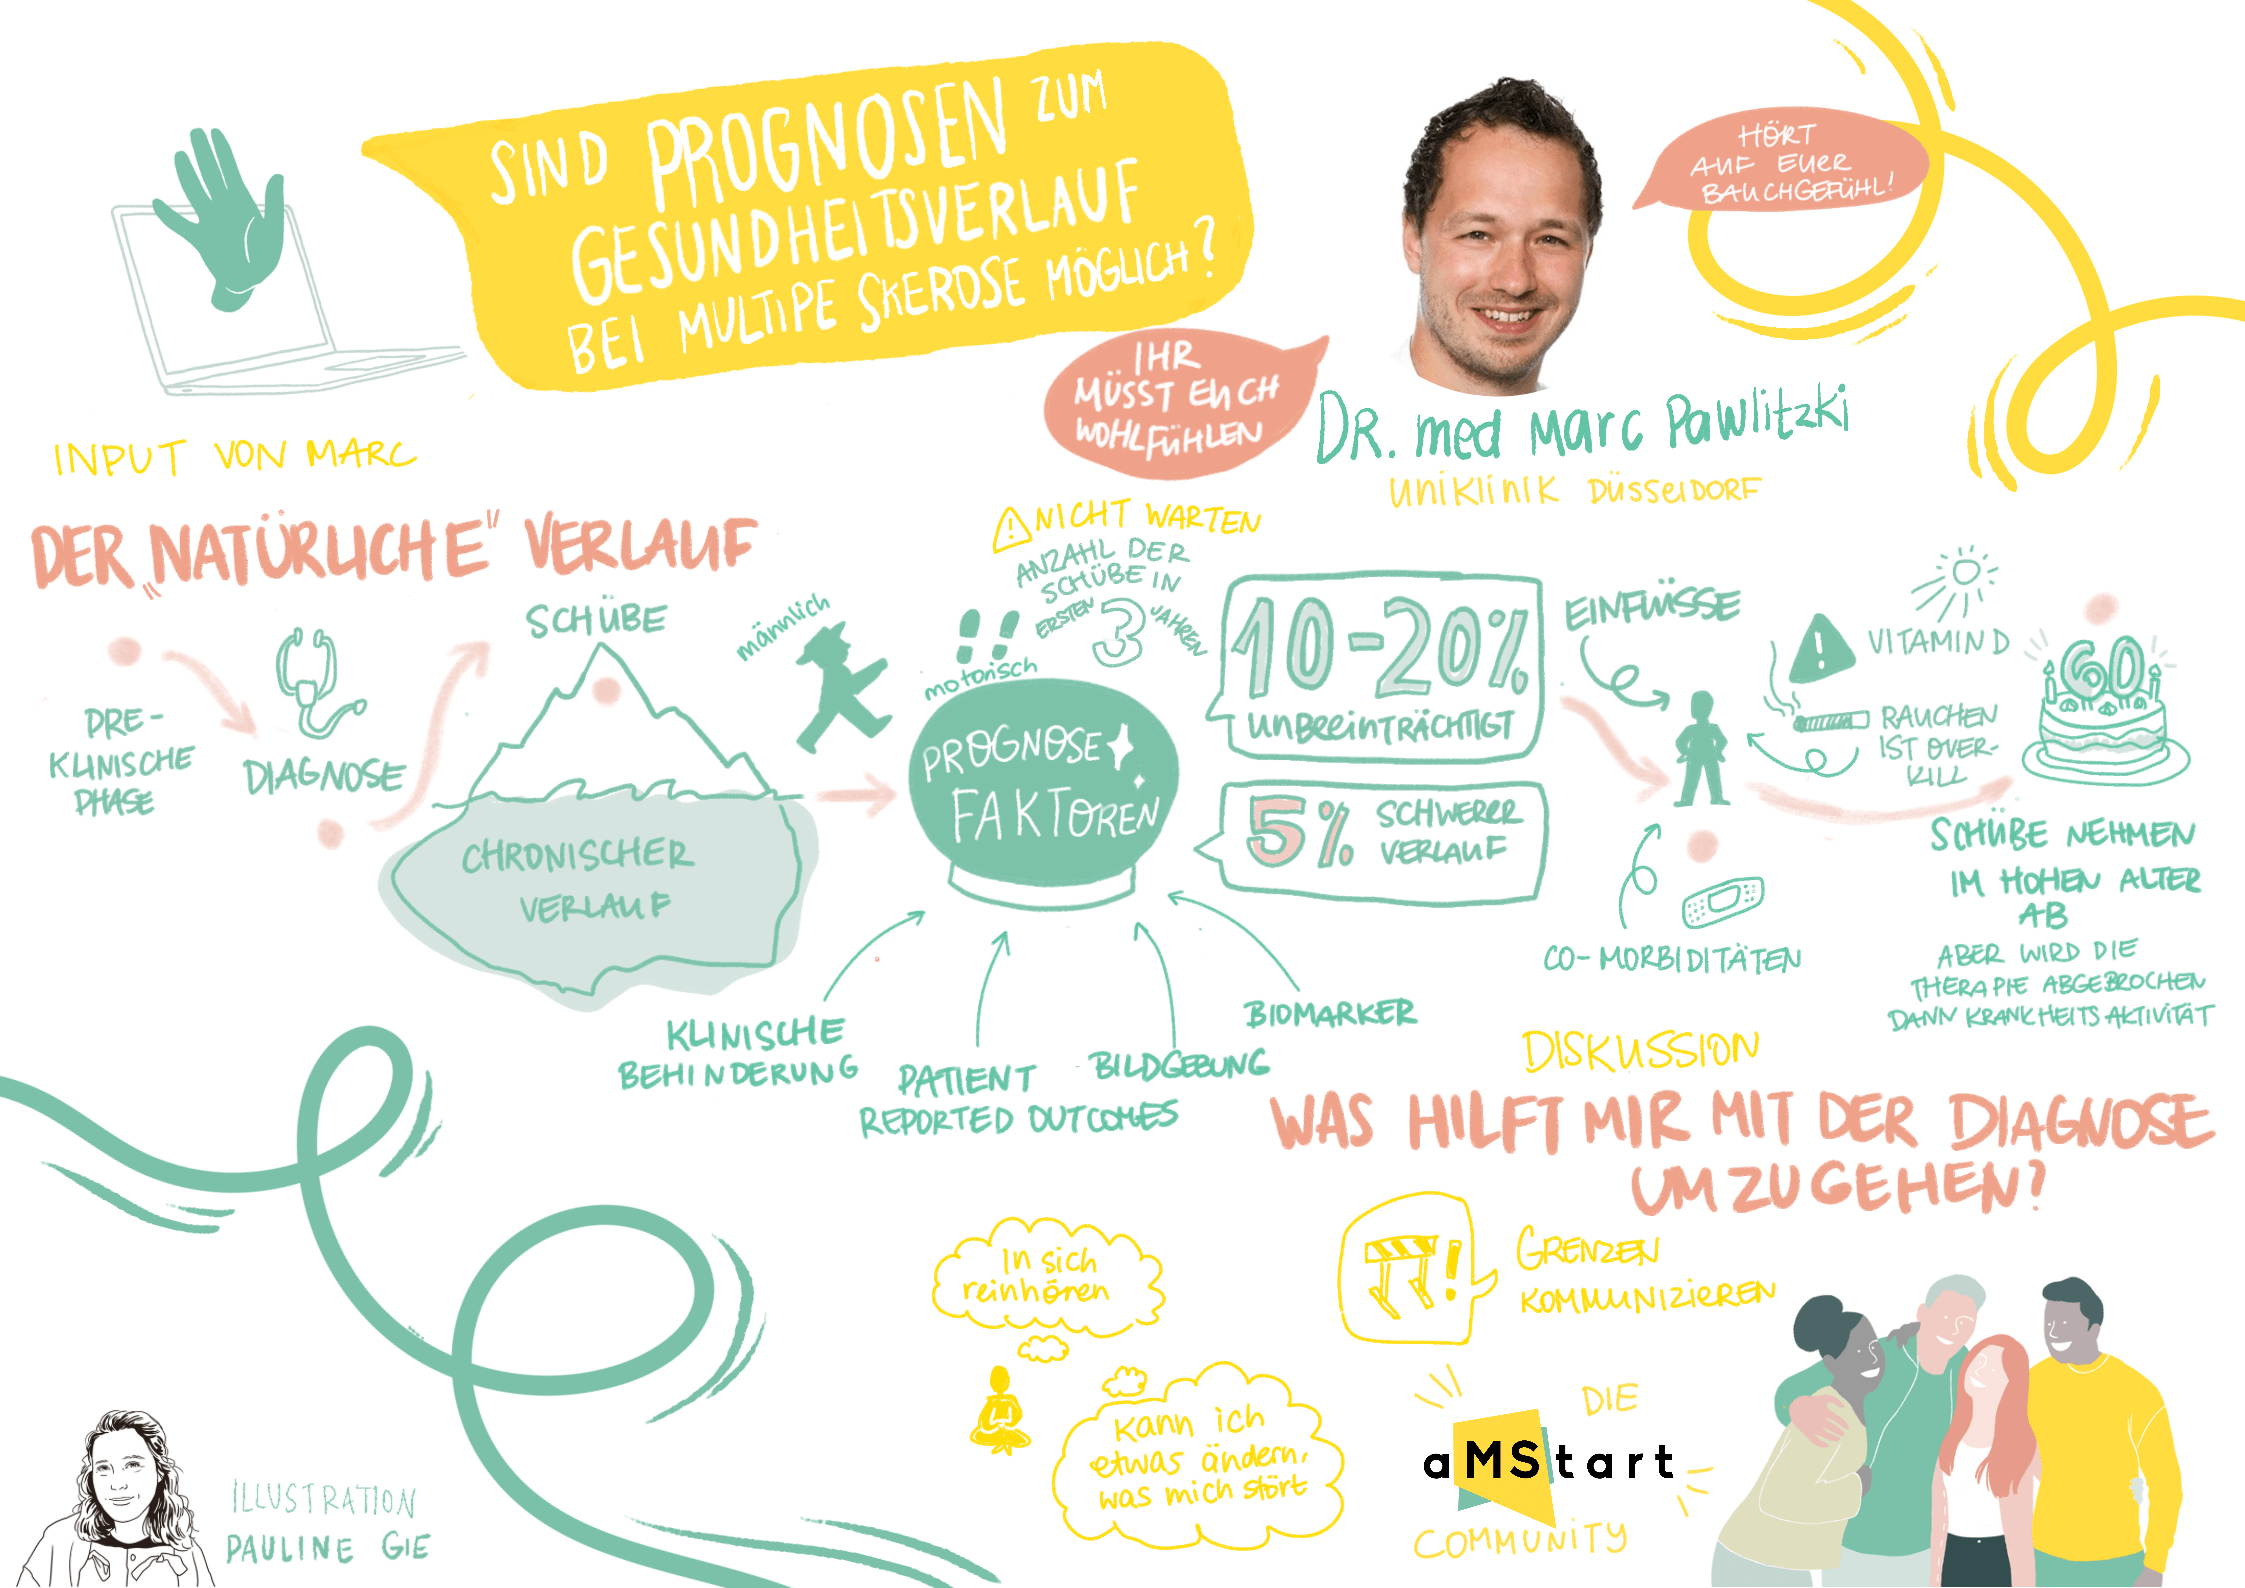 SIND PROGNOSEN ZUM
GESUNDHEITSVERLAUF
BEI MULTIPE SKEROSE MÖGLICH?
HÖRT
AUF EUER
BAUCHGEFÜHL!
IHR
MÜSST EUCH
WOHLFÜHLEN
DR. med Marc Pawlitzki
UNIKLINIK DÜSSELDORF
INPUT VON MARC
DER „NATÜRLICHE" VERLAUF
PRE-
KLINISCHE
PHASE
DIAGNOSE
SCHÜBE
CHRONISCHER
VERLAUF
männlich
motorisch
NICHT WARTEN
ANZAHL DER
SCHÜBE IN
ERSTEN 3 JAHREN
PROGNOSE
FAKTOREN
KLINISCHE
BEHINDERUNG
PATIENT
REPORTED OUTCOMES
BILDGEBUNG
BIOMARKER
10-20%
UNBEEINTRÄCHTIGT
5% SCHWERER
VERLAUF
EINFLÜSSE
VITAMIN D
RAUCHEN
IST OVER-
KILL
CO-MORBIDITÄTEN
60
SCHÜBE NEHMEN
IM HOHEN ALTER
AB
ABER WIRD DIE
THERAPIE ABGEBROCHEN
DANN KRANKHEITSAKTIVITÄT
DISKUSSION
WAS HILFT MIR MIT DER DIAGNOSE
UMZUGEHEN?
In sich
reinhören
Kann ich
etwas ändern,
was mich stört
GRENZEN
KOMMUNIZIEREN
DIE
aMStart
COMMUNITY
ILLUSTRATION
PAULINE GIE